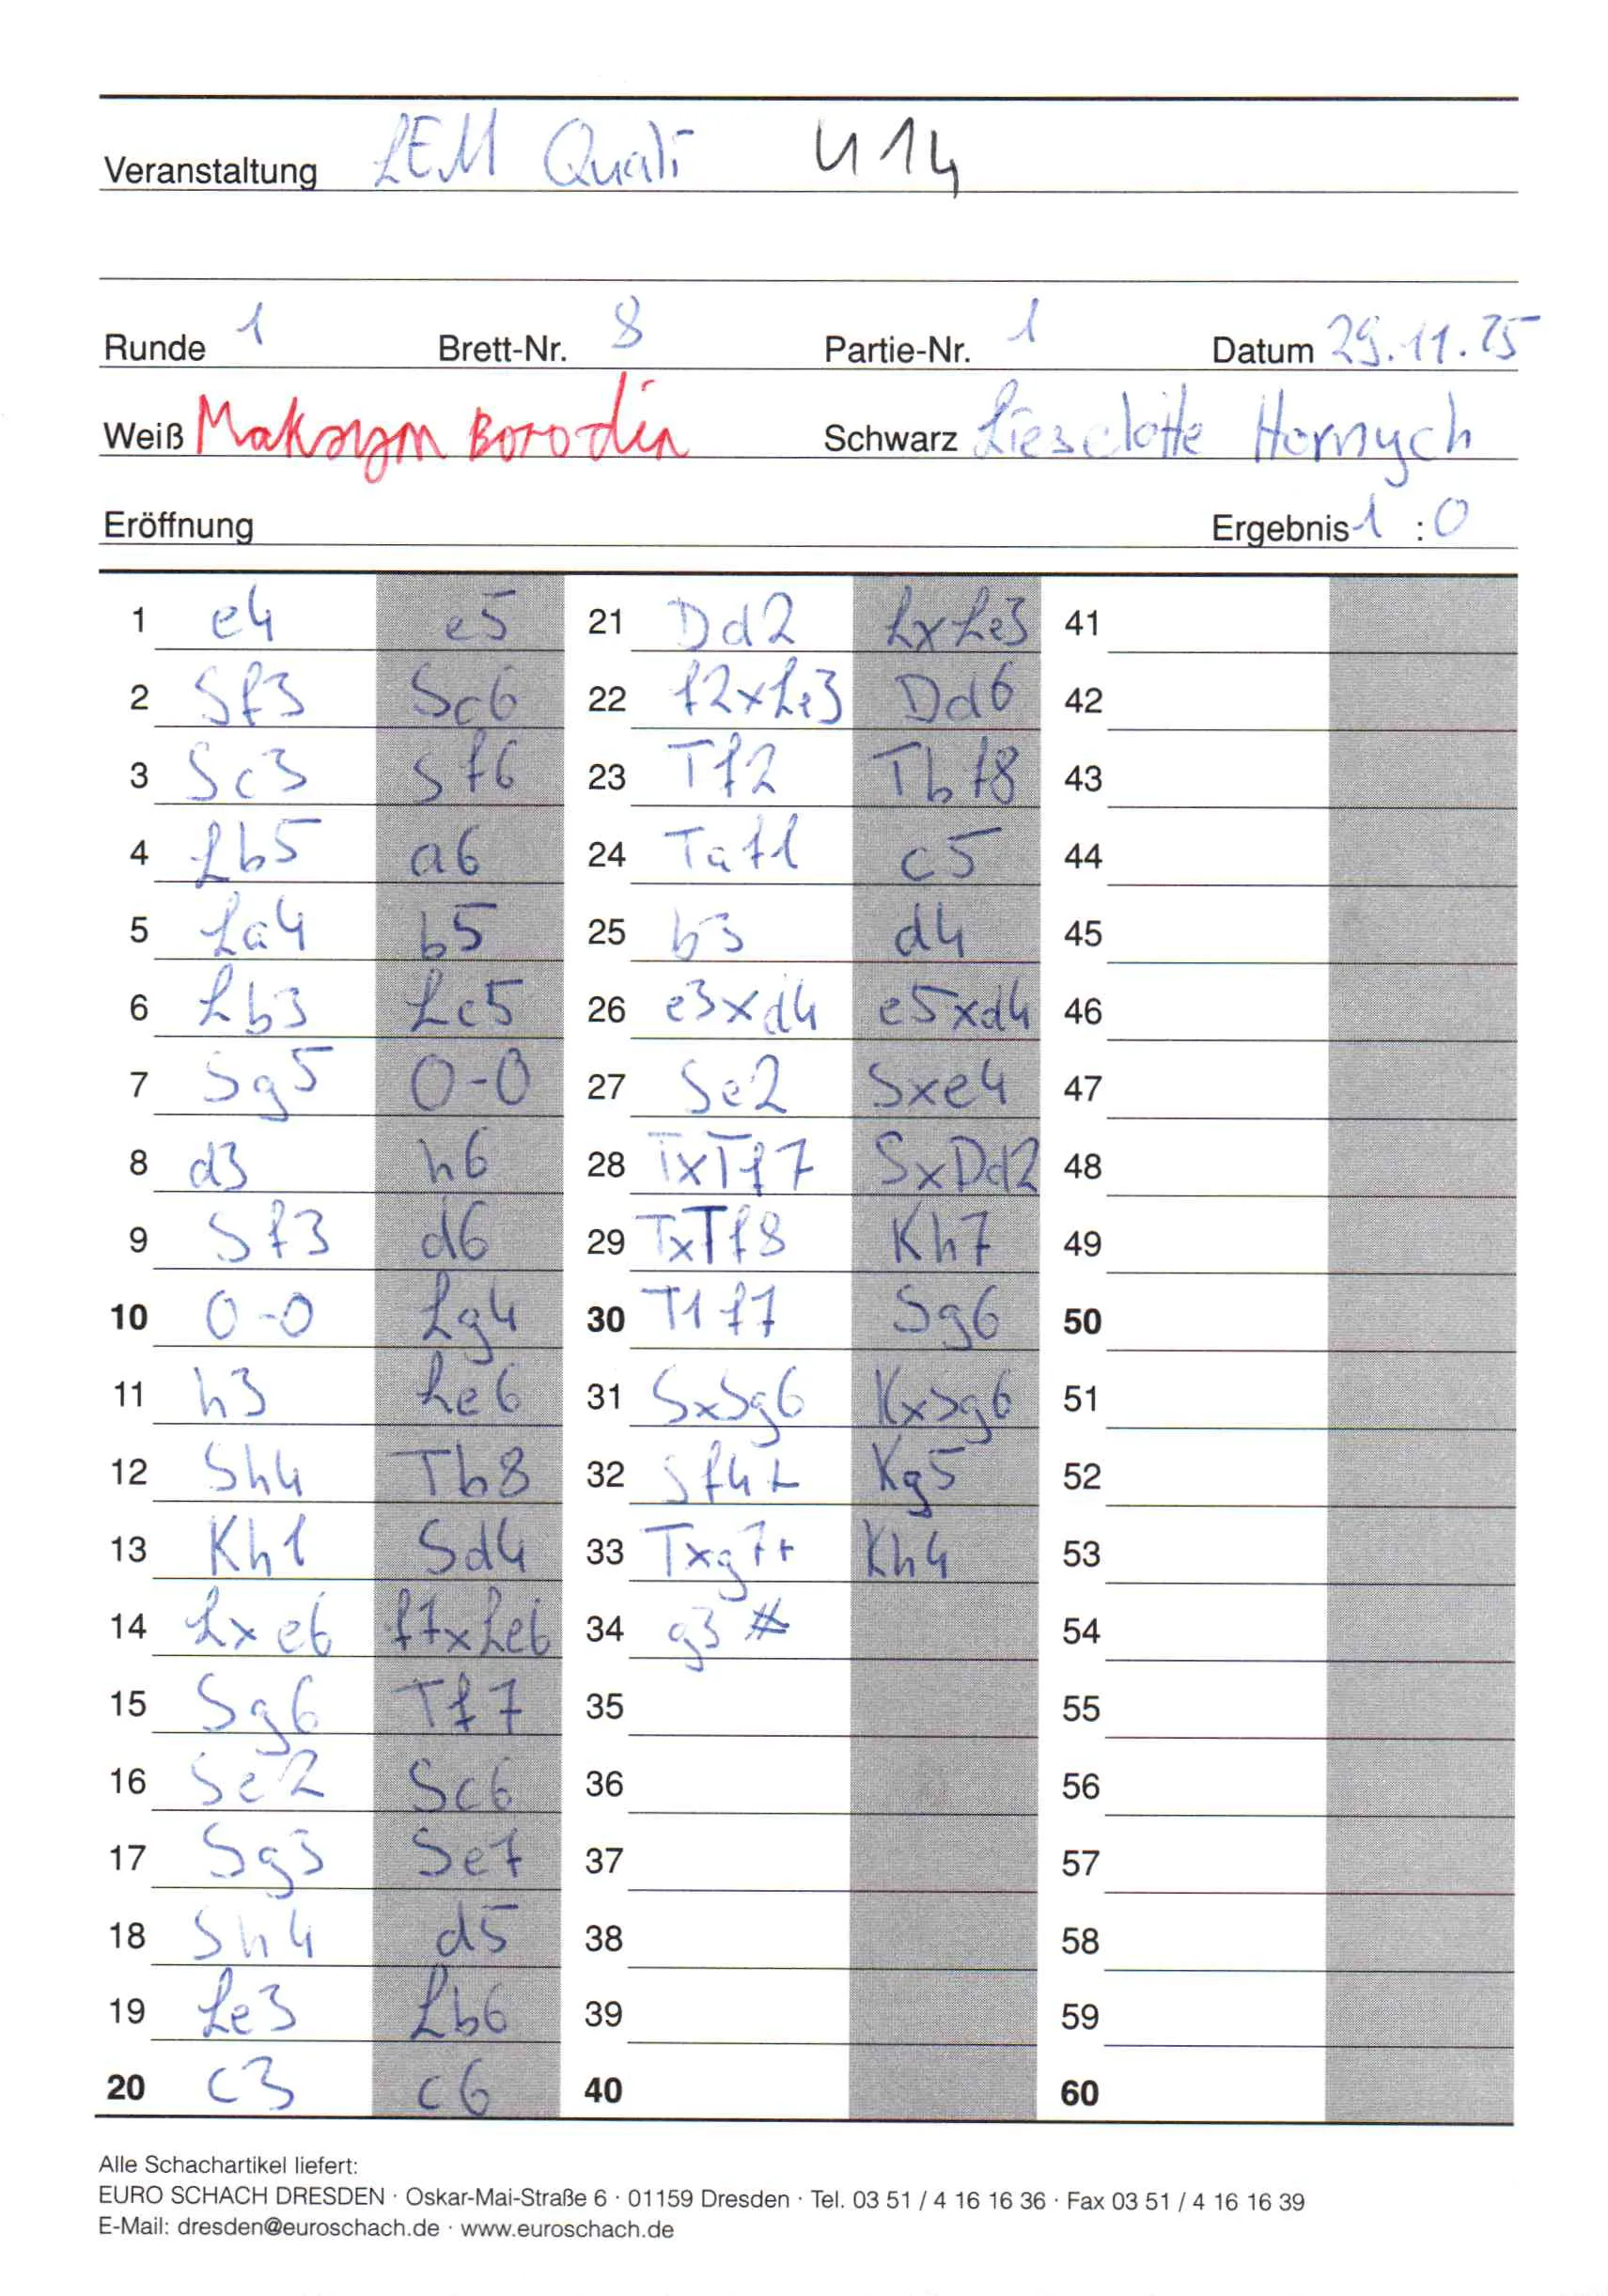 Veranstaltung LEM Quali U14
Runde 1 Brett-Nr. 8 Partie-Nr. 1 Datum 29.11.25
Weiß Maksym Borodin Schwarz Lieselotte Hornych
Eröffnung Ergebnis 1 : 0
1 e4 e5 21 Dd2 LxLe3 41
2 Sf3 Sc6 22 f2xLe3 Dd6 42
3 Sc3 Sf6 23 Tf2 Tbf8 43
4 Lb5 a6 24 Taf1 c5 44
5 La4 b5 25 b3 d4 45
6 Lb3 Lc5 26 e3xd4 e5xd4 46
7 Sg5 0-0 27 Se2 Sxe4 47
8 d3 h6 28 TxTf7 SxDd2 48
9 Sf3 d6 29 TxTf8 Kh7 49
10 0-0 Lg4 30 T1f7 Sg6 50
11 h3 Le6 31 SxSg6 KxSg6 51
12 Sh4 Tb8 32 Sf4+ Kg5 52
13 Kh1 Sd4 33 Txg7+ Kh4 53
14 Lxe6 f7xLe6 34 g3 # 54
15 Sg6 Tf7 35 55
16 Se2 Sc6 36 56
17 Sg3 Se7 37 57
18 Sh4 d5 38 58
19 Le3 Lb6 39 59
20 c3 c6 40 60
Alle Schachartikel liefert:
EURO SCHACH DRESDEN · Oskar-Mai-Straße 6 · 01159 Dresden · Tel. 03 51 / 4 16 16 36 · Fax 03 51 / 4 16 16 39
E-Mail: dresden@euroschach.de · www.euroschach.de